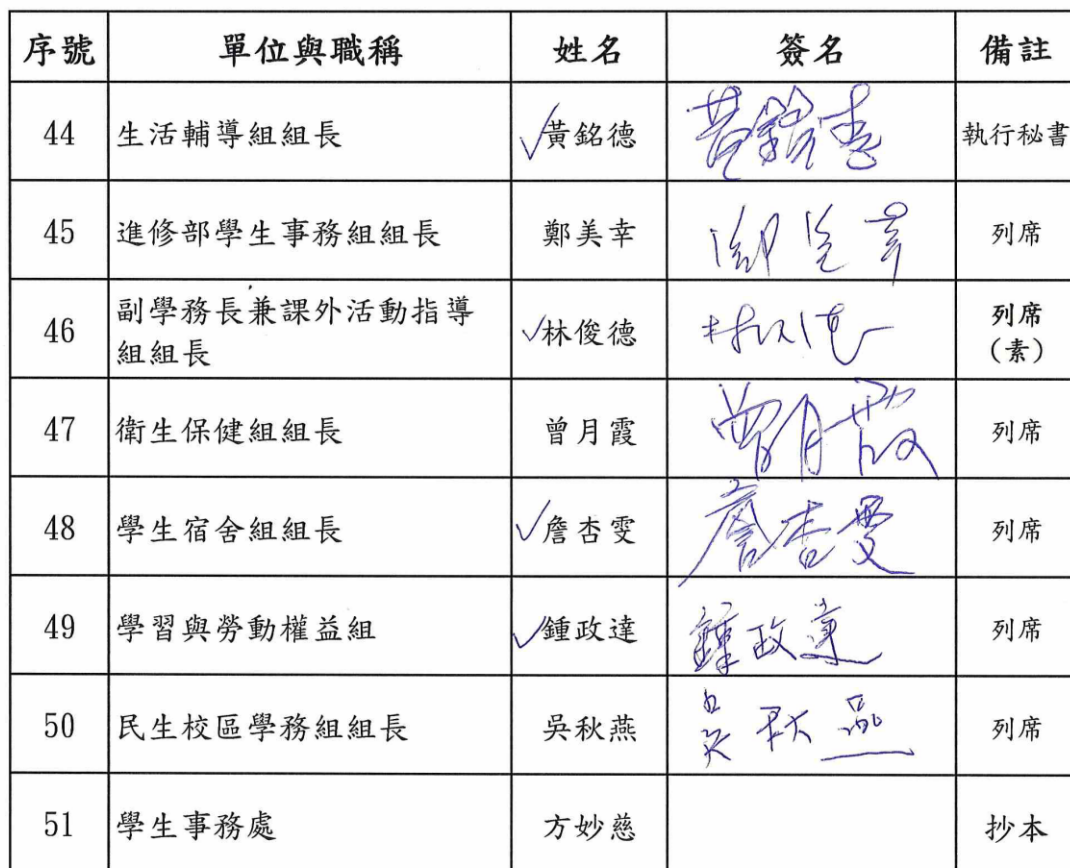 序號 單位與職稱 姓名 簽名 備註
44 生活輔導組組長 黃銘德 黃銘德 執行秘書
45 進修部學生事務組組長 鄭美幸 鄭美幸 列席
46 副學務長兼課外活動指導 林俊德 林俊德 列席
組組長 (素)
47 衛生保健組組長 曾月霞 曾月霞 列席
48 學生宿舍組組長 詹杏雯 詹杏雯 列席
49 學習與勞動權益組 鍾政達 鍾政達 列席
50 民生校區學務組組長 吳秋燕 吳秋燕 列席
51 學生事務處 方妙慈 抄本